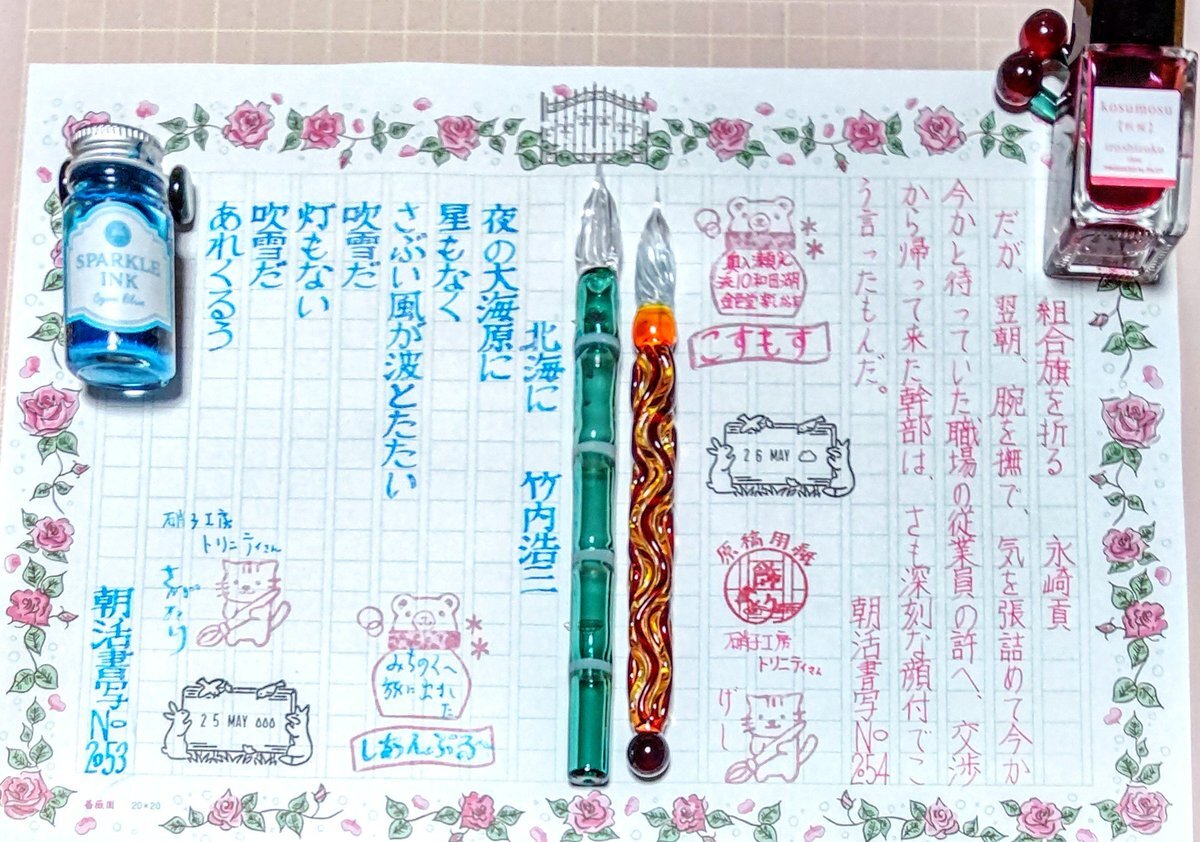 kosumosu
【秋桜】
iroshizuku
組合旗を折る　永崎貢
だが、翌朝、腕を撫で、気を張詰めて今か
今かと待っていた職場の従業員の許へ、交渉
から帰って来た幹部は、さも深刻な顔付でこ
う言ったもんだ。
朝活書写No2054
こすもす
26 MAY
原稿用紙
硝子工房
トリニティさん
げし
北海に　竹内浩二
夜の大海原に
星もなく
さぶい風が波とたたい
吹雪だ
灯もない
吹雪だ
あれくるう
みちのくへ
旅に出まし
た
しあんぶるー
硝子工房
トリニティさん
25 MAY
朝活書写No2053
SPARKLE
INK
Cyan Blue
薔薇園 20×20